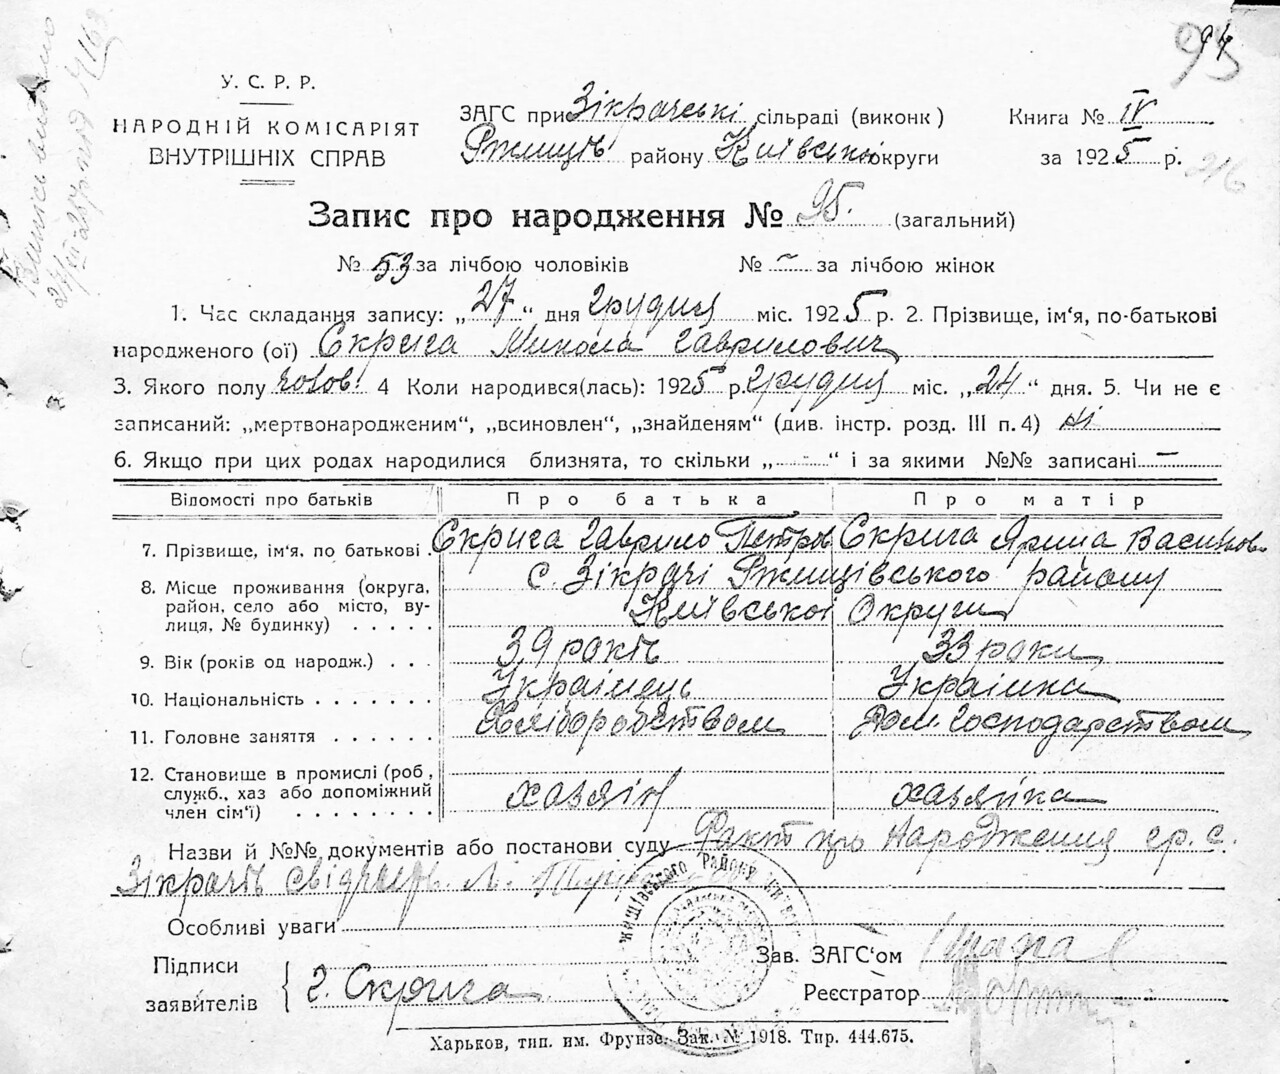 94
95
У. С. Р. Р.
НАРОДНІЙ КОМІСАРІЯТ
ВНУТРІШНІХ СПРАВ
ЗАГС при Зікрачські сільраді (виконк)
Ржищів району Київської округи
Книга № IV
за 1925 р.
216
Запис про народження № 95. (загальний)
№ 53 за лічбою чоловіків № – за лічбою жінок
1. Час складання запису: „27“ дня грудня міс. 1925 р. 2. Прізвище, ім'я, по-батькові
народженого (ої) Скрига Микола Гаврилович
3. Якого полу чолов. 4 Коли народився(лась): 1925 р. грудня міс. „24“ дня. 5. Чи не є
записаний: „мертвонародженим“, „всиновлен“, „знайденям“ (див. інстр. розд. III п. 4) ні
6. Якщо при цих родах народилися близнята, то скільки „ - “ і за якими №№ записані –
Відомості про батьків Про батька Про матір
7. Прізвище, ім'я. по батькові . Скрига Гаврило Петров Скрига Ярина Васильов
8. Місце проживання (округа, район, село або місто, ву- лиця, № будинку) . . . . . с. Зікрачі Ржищівського району
Київської Округи
9. Вік (років од народж.) . . . 39 років 33 роки
10. Національність . . . . . . . Українець Українка
11. Головне заняття . . . . . . Хліборобством Дом. Господарством
12. Становище в промислі (роб, служб., хаз або допоміжний член сім'ї) . . . . . . . . хазяін хазяйка
Назви й №№ документів або постанови суду Факт про народження гр. с.
Зікрачів
Особливі уваги
Підписи
заявителів { Г. Скрига
Зав. ЗАГС'ом
Реєстратор
Харьков, тип. им. Фрунзе. Зак. № 1918. Тир. 444.675.